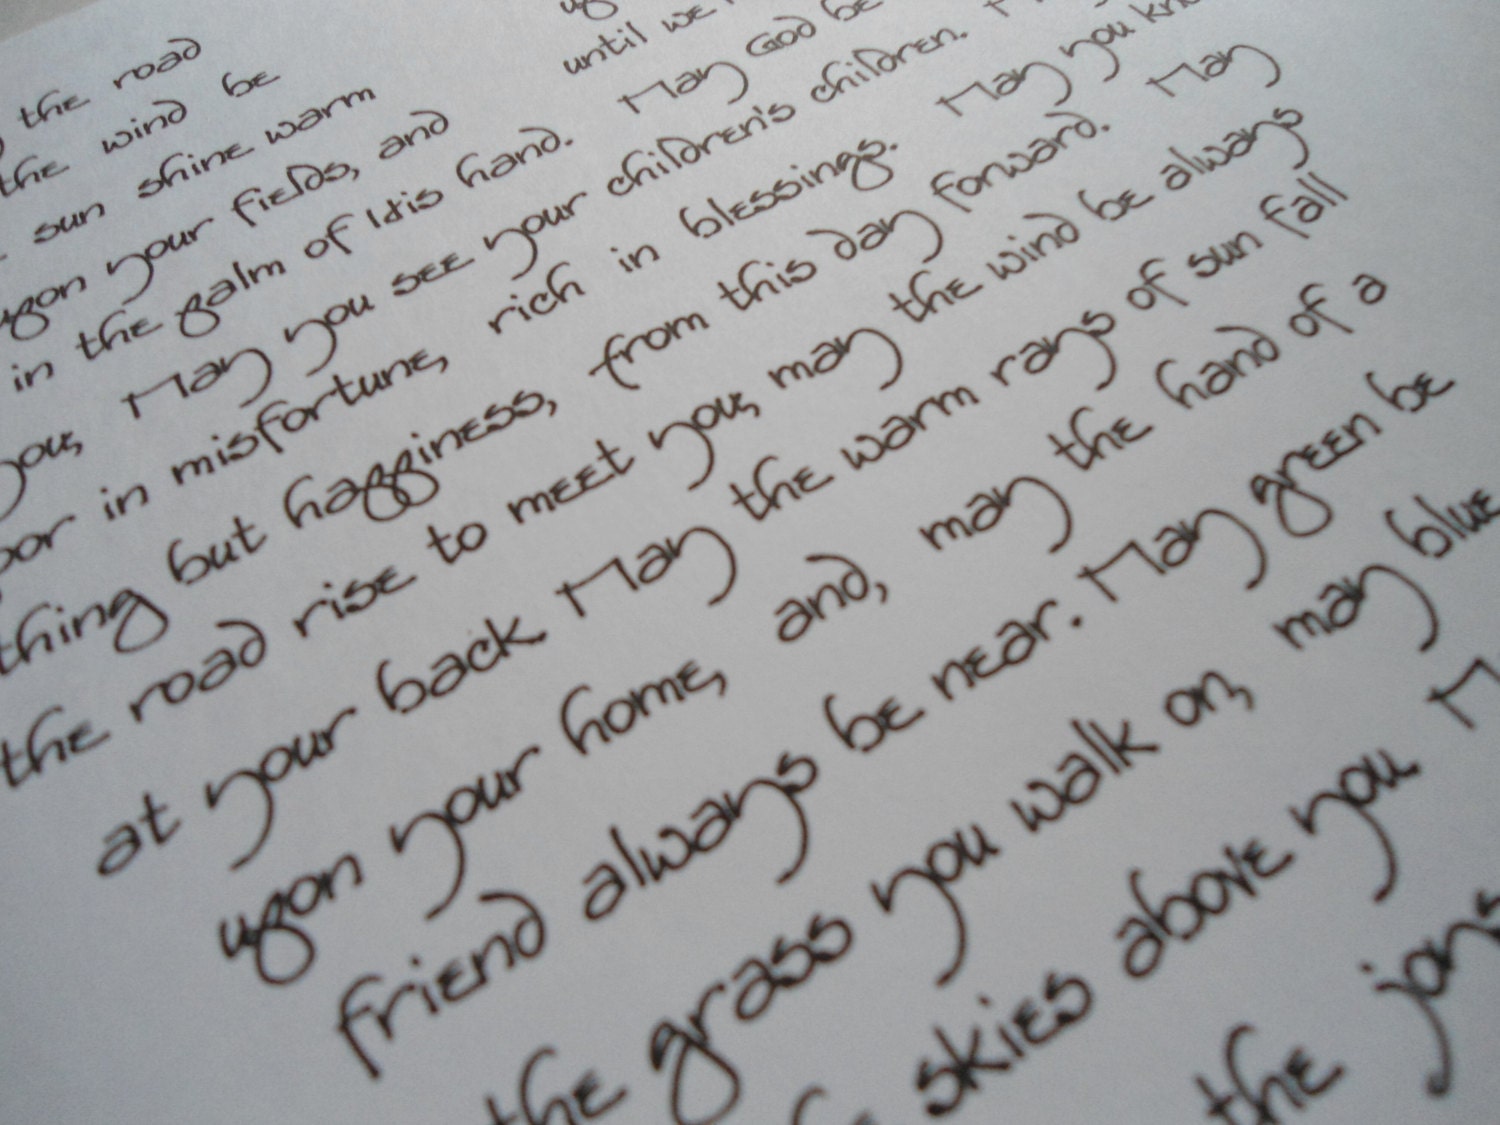 the road
the wind be
sun shine warm
upon your fields, and until we
in the palm of His hand. May God be
you, May you see your children's children.
in misfortune, rich in blessings. May you
thing but happiness, from this day forward. May
the road rise to meet you, may the wind be always
at your back. May the warm rays of sun fall
upon your home, and, may the hand of a
friend always be near. May green be
the grass you walk on, may blue
skies above you
the joys